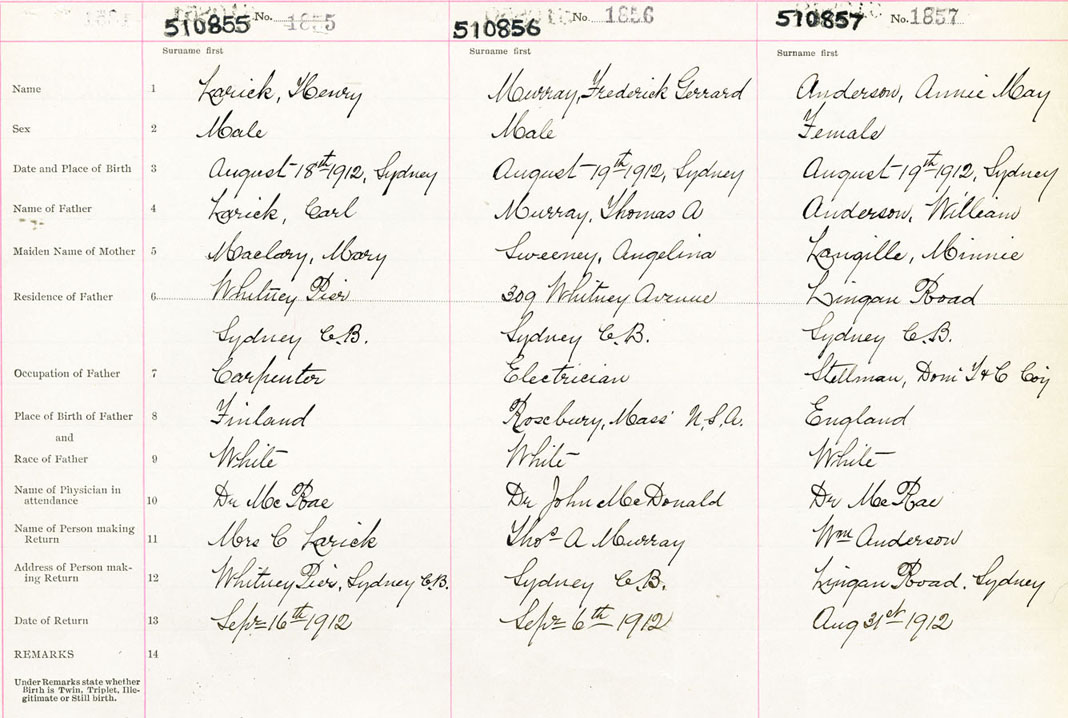 510855 No. 1855 510856 No. 1856 510857 No. 1857
Surname first Surname first Surname first
Name 1 Larick, Henry Murray, Frederick Gerrard Anderson, Annie May
Sex 2 Male Male Female
Date and Place of Birth 3 August 18th 1912, Sydney August 19th 1912, Sydney August 19th 1912, Sydney
Name of Father 4 Larick, Carl Murray, Thomas A Anderson, William
Maiden Name of Mother 5 Maclary, Mary Sweeney, Angelina Langille, Minnie
Residence of Father 6 Whitney Pier 309 Whitney Avenue Lingan Road
Sydney C.B. Sydney C.B. Sydney C.B.
Occupation of Father 7 Carpenter Electrician Stellman, Dom I & C Coy
Place of Birth of Father 8 Finland Roxbury, Mass U.S.A. England
and
Race of Father 9 White White White
Name of Physician in
attendance 10 Dr McRae Dr John McDonald Dr McRae
Name of Person making
Return 11 Mrs C Larick Thos A Murray Wm Anderson
Address of Person mak-
ing Return 12 Whitney Pier, Sydney C.B. Sydney C.B. Lingan Road. Sydney
Date of Return 13 Sepr 16th 1912 Sepr 6th 1912 Aug 31st 1912
REMARKS 14
Under Remarks state whether
Birth is Twin, Triplet, Ille-
gitimate or Still birth.